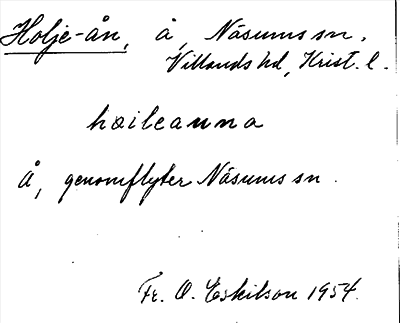 Holje-ån, å, Näsums sn.
Villands hd, Krist. l.
haileanna
Å, genomflyter Näsums sn.
Fr. O. Eskilson 1954.